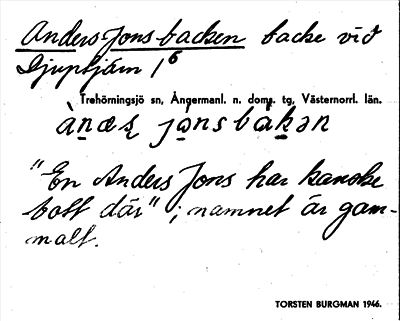 Anders-Jonsbacken backe vid
Djuptjärn 1⁶
Trehörningsjö sn, Ångermanl. n. doms. tg, Västernorrl. län.
"En Anders Jons har kanske
bott där"; namnet är gam-
malt.
TORSTEN BURGMAN 1946.